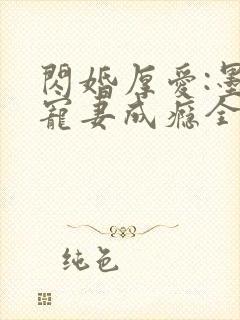 閃婚厚愛:墨
寵妻成癮全
纯色